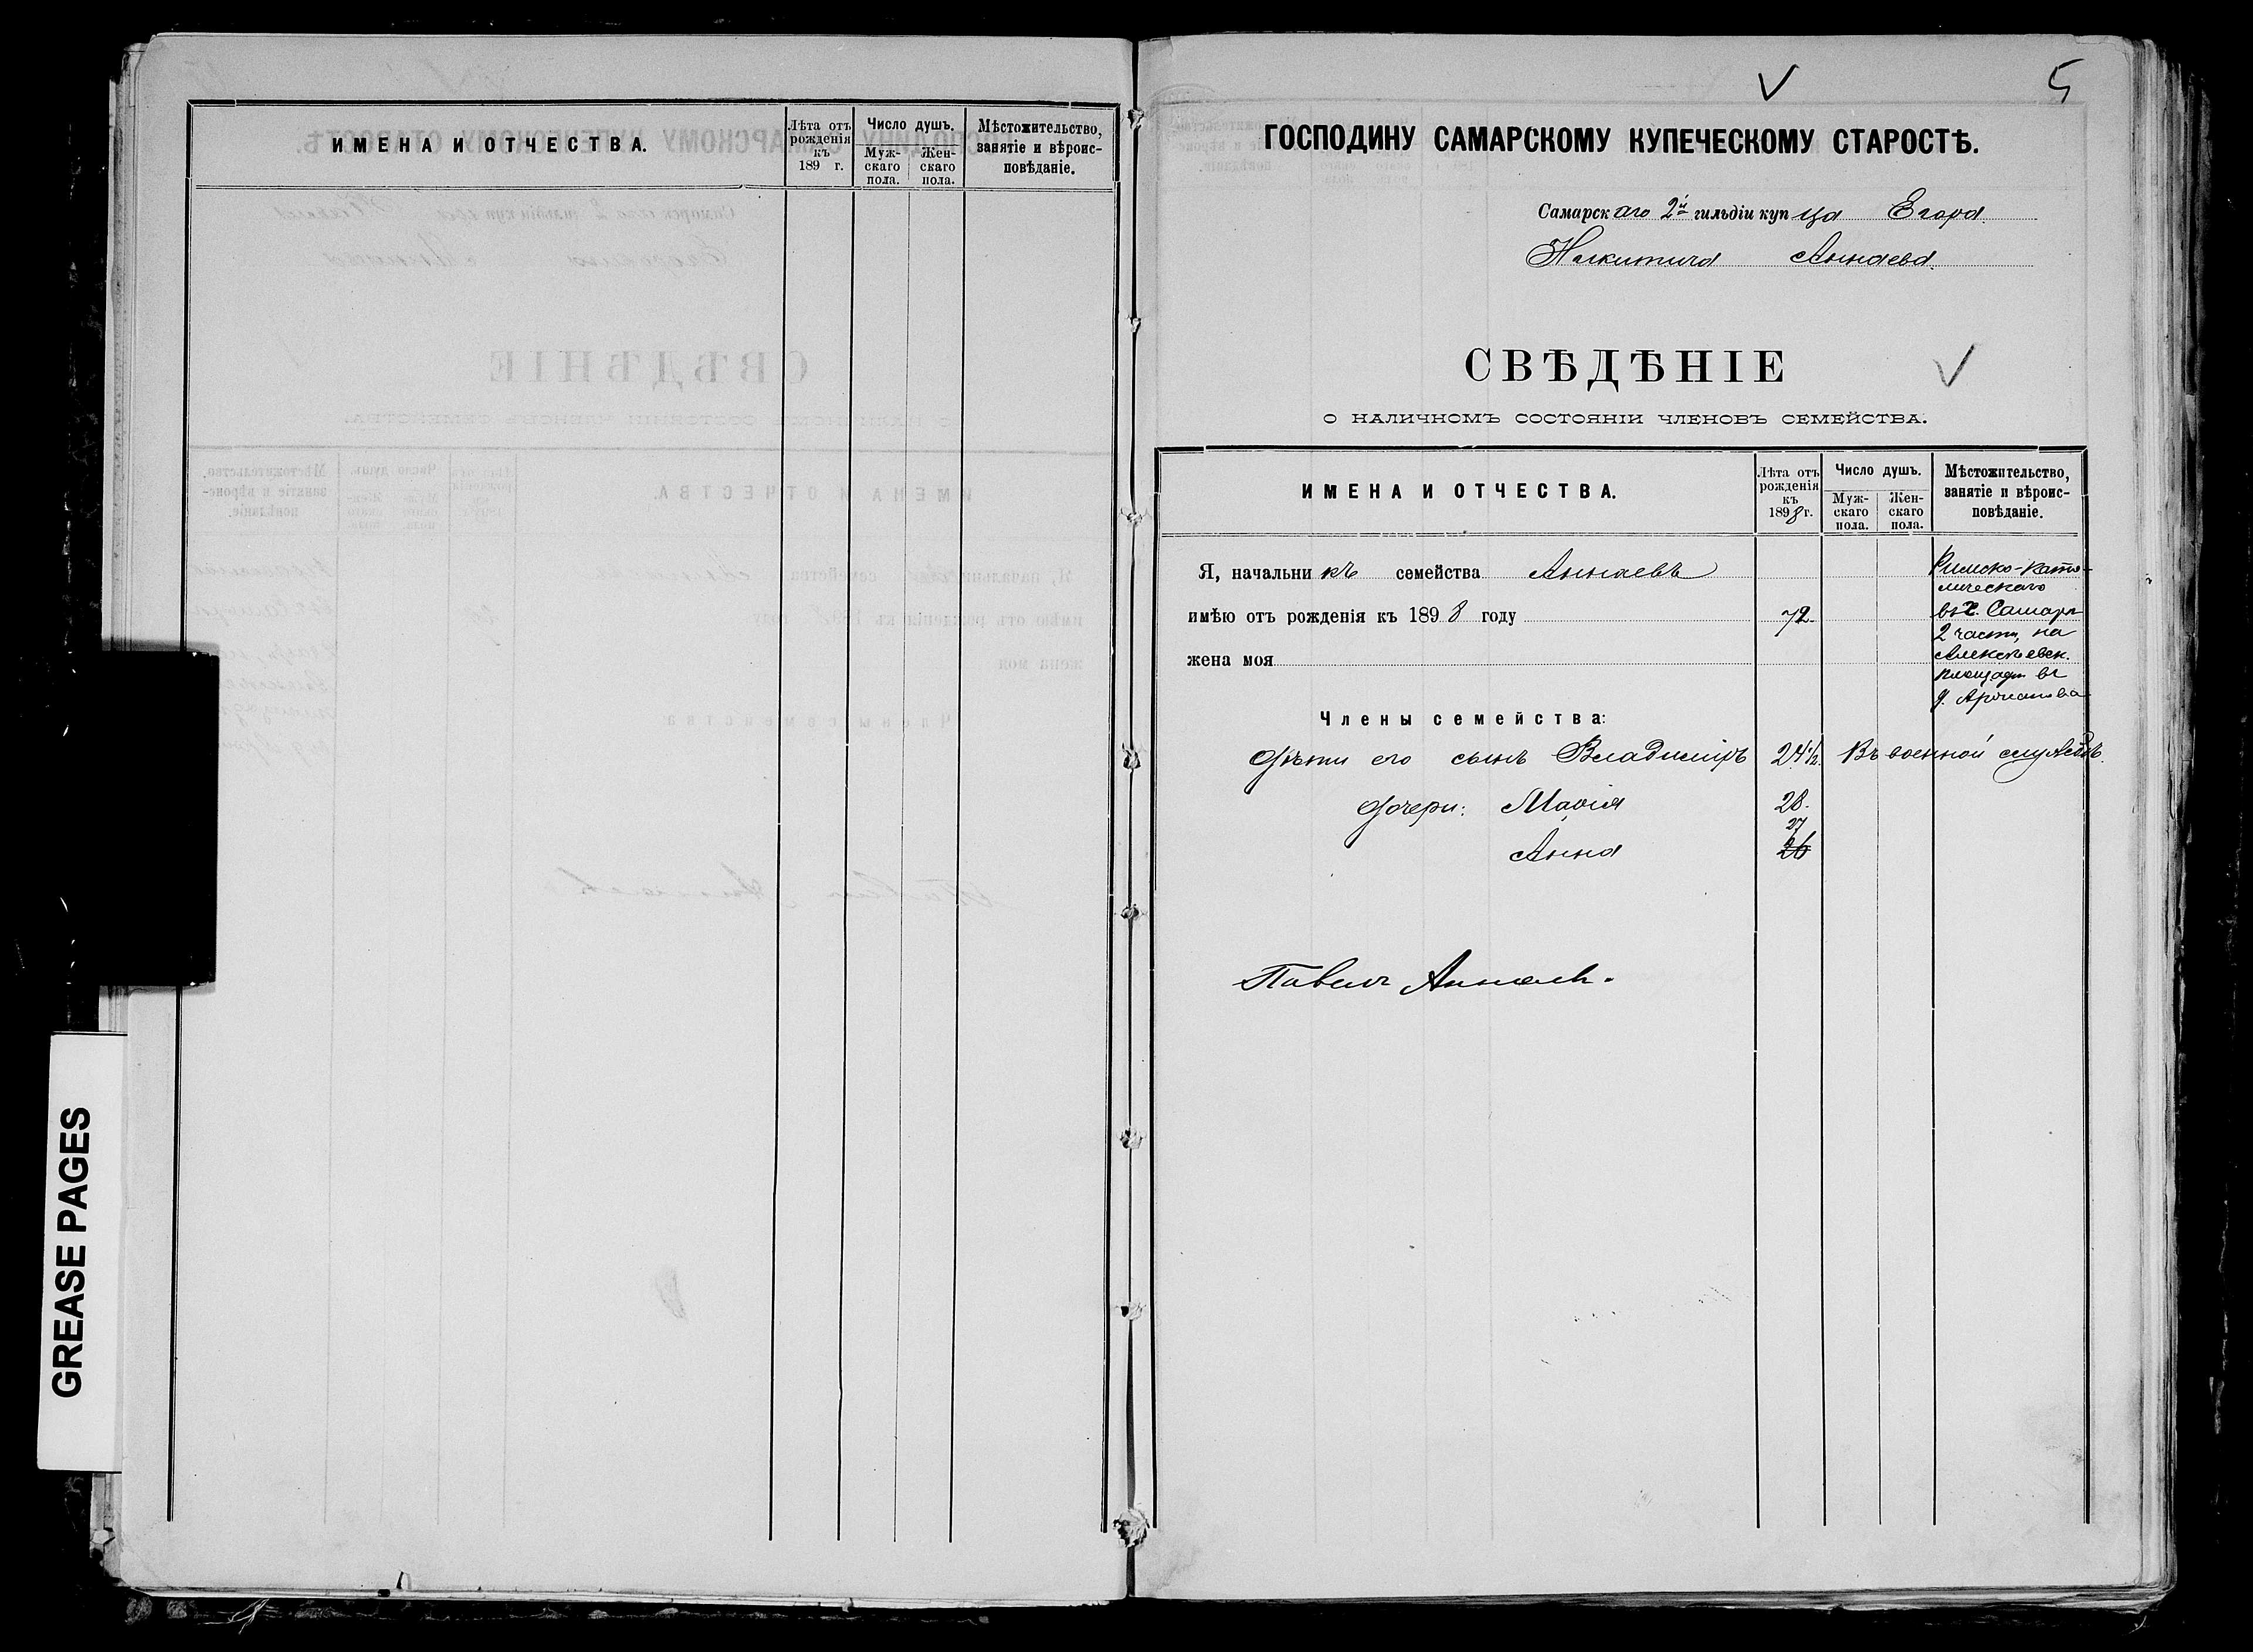 ИМЕНА И ОТЧЕСТВА.
Лѣта отъ рожденія къ 189 г.
Число душъ.
Мужскаго пола.
Женскаго пола.
Мѣстожительство, занятіе и вѣроисповѣданіе.
GREASE PAGES
5
ГОСПОДИНУ САМАРСКОМУ КУПЕЧЕСКОМУ СТАРОСТѢ.
Самарскаго 2й гильдіи купца Егора
Никитича Аннаева.
СВѢДѢНІЕ
О НАЛИЧНОМЪ СОСТОЯНІИ ЧЛЕНОВЪ СЕМЕЙСТВА.
ИМЕНА И ОТЧЕСТВА.
Лѣта отъ рожденія къ 1898 г.
Число душъ.
Мужскаго пола.
Женскаго пола.
Мѣстожительство, занятіе и вѣроисповѣданіе.
Я, начальникъ семейства Аннаевъ
имѣю отъ рожденія къ 1898 году 72
жена моя
Римско-Като-
лическаго
въ г. Самарѣ
2 части, на
Алексѣевск.
площади въ
д.
Члены семейства:
Дѣти его сынъ Владиміръ 24½ Въ военной службѣ.
Дочери: Марія 28.
27
Анна 26
Павелъ Аннаевъ.